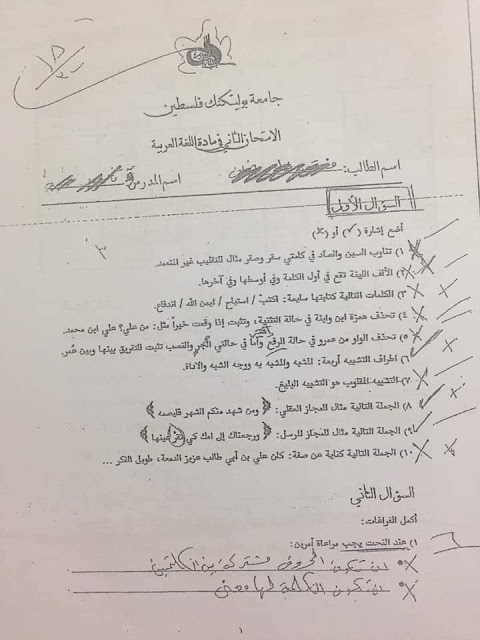 ١٥
٣٠
جامعة بوليتكنك فلسطين
الامتحان الثاني في مادة اللغة العربية
اسم الطالب: اسم المدرس
السؤال الأول
أضع إشارة (✓) أو (×)
٣
١) تناوب السين والصاد في كلمتي سقر وصقر مثال للتقليب غير المتعمد.
٢) الألف اللينة تقع في أول الكلمة وفي أوسطها وفي آخرها.
٣) الكلمات التالية كتابتها سليمة: اكتب / استباح / ايمن الله / اندفاع.
٤) تحذف همزة ابن وابنة في حالة التثنية، وتثبت إذا وقعت خبراً مثل: من علي؟ علي ابن محمد.
٥) تحذف الواو من عمرو في حالة الرفع وأما في حالتي الجر والنصب تثبت للتفريق بينها وبين عُمر.
٦) أطراف التشبيه أربعة: المشبه والمشبه به ووجه الشبه والأداة.
٧) التشبيه المقلوب هو التشبيه البليغ.
٨) الجملة التالية مثال للمجاز العقلي: ﴿ومن شهد منكم الشهر فليصمه﴾
٩) الجملة التالية مثال للمجاز المرسل: ﴿ورجعناك إلى امك كي تقر عينها﴾
١٠) الجملة التالية كناية عن صفة: كان علي بن أبي طالب عزيز الدمعة، طويل الفكر ...
السؤال الثاني
أكمل الفراغات:
١) عند النحت يجب مراعاة أمرين:
ان تكون الحروف مشتركة بين الكلمتين
ان تكون الكلمة لها معنى
١